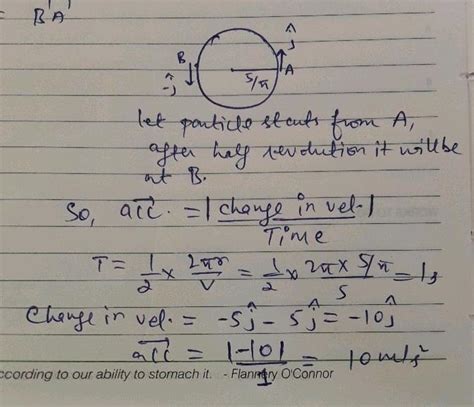 = B'A'
ĵ
B
-ĵ
5/π
A
let particle starts from A,
after half revolution it will be
at B.
So, acc. = |change in vel.| / Time
T = 1/2 × 2πr/V = 1/2 × 2π × 5/π / 5 = 1s
Change in vel. = -5ĵ - 5ĵ = -10ĵ
acc = |-10| / 1 = 10 m/s²
ccording to our ability to stomach it. - Flannery O'Connor